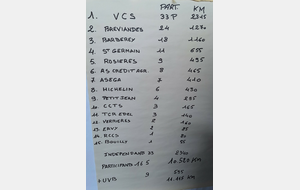 PART. KM
1. VCS 33 P 2315
2. BREVIANDES 24 1270
3. BARBEREY 18 1.160
4. ST GERMAIN 11 655
5. ROSIERES 9 495
6. AS CREDIT AGR. 8 465
7. ASEGA 7 410
8. MICHELIN 6 430
9. PETIT JEAN 4 295
10. CCTS 3 165
11. TCR 3 140
12. VERRIERES 2 160
13. ERVY 2 85
14. RCCS 1 80
15. BOUILLY 1 55
INDEPENDANTS 33
PARTICIPANTS 165 10.520 KM
+ UVB 9 595